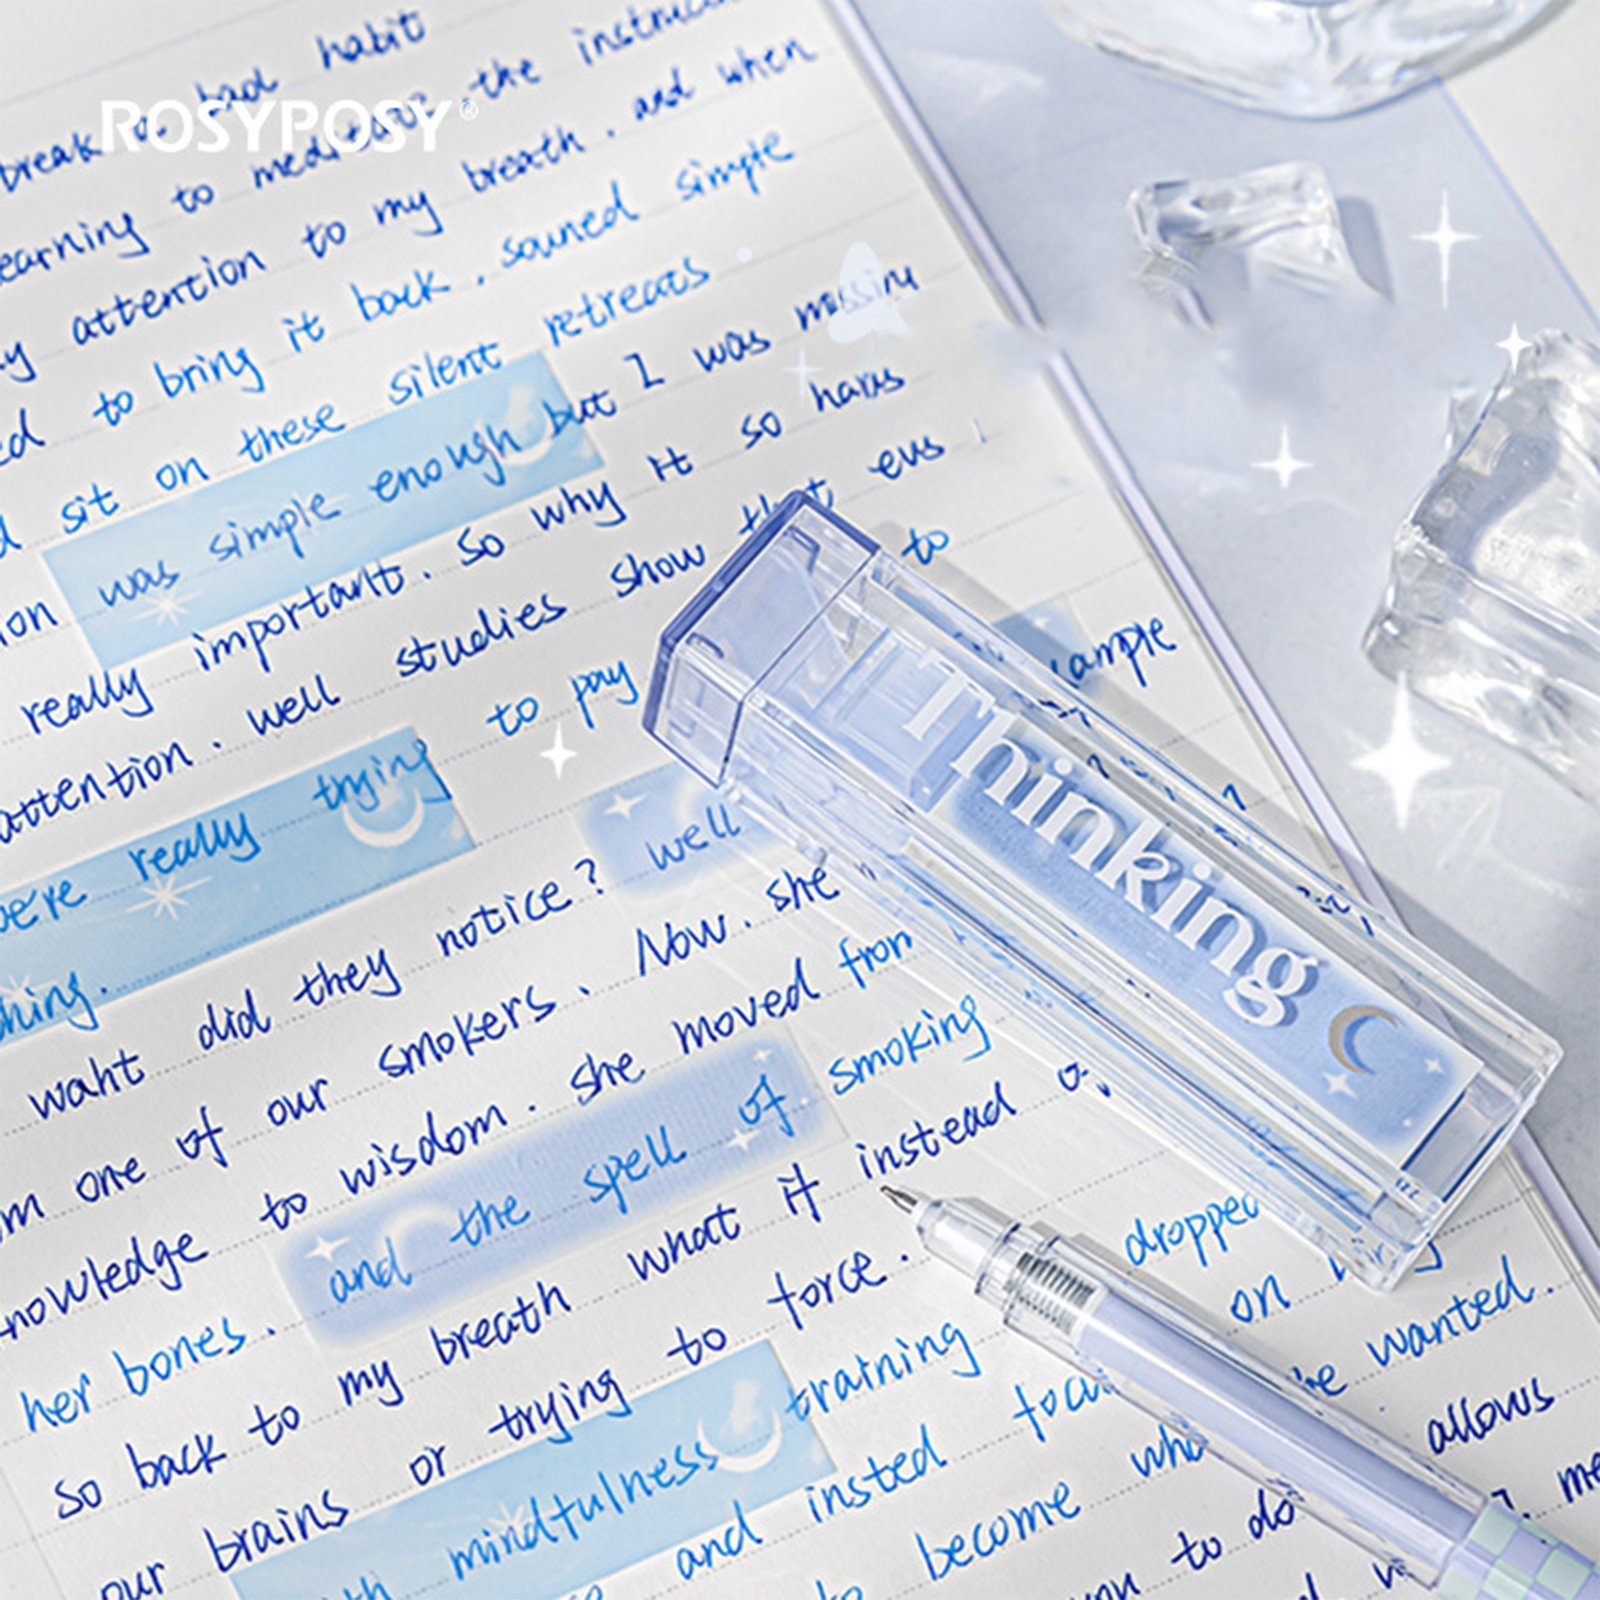 ROSYPOSY®
break a bad habit
earning to meditate the
attention to my breath. and when
to bring it back. souned simple
sit on these silent retreats
was simple enough but I was
really important. So why it so
attention. well studies show that
to
we're really trying to pay
ample
Thinking
waht did they notice? well
one of our smokers. Now. she
to wisdom. she moved fron
her bones. and the spell of smoking
So back to my breath what it instead
our brains or trying to force.
dropped
mindfulness training on
and insted wanted.
become allows
to do